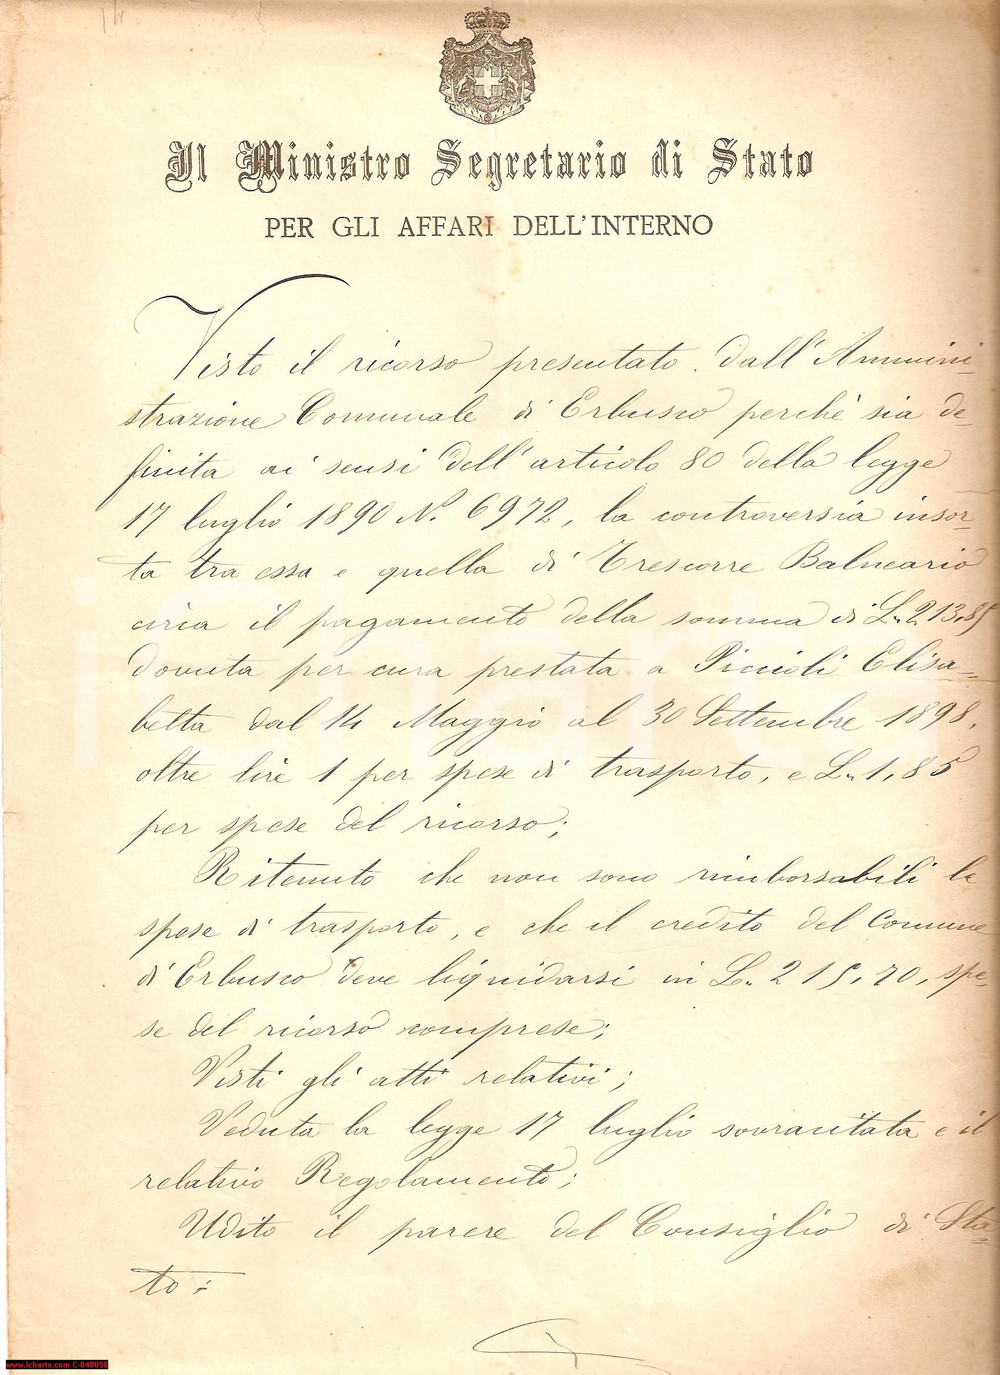 Il Ministro Segretario di Stato
PER GLI AFFARI DELL'INTERNO
Visto il ricorso presentato dall'Ammini-
strazione Comunale di Erbusco perchè sia de-
finita ai sensi dell'articolo 80 della legge
17 luglio 1890 N. 6972, la controversia insor-
ta tra essa e quella di Trescorre Balneario
circa il pagamento della somma di L. 213,85
dovuta per cura prestata a Piccioli Elisa-
betta dal 14 Maggio al 30 Settembre 1898,
oltre lire 1 per spese di trasporto, e L. 1,85
per spese del ricorso;
Ritenuto che non sono rimborsabili le
spese di trasporto, e che il credito del Comune
di Erbusco deve liquidarsi in L. 215,70, spe-
se del ricorso comprese;
Visti gli atti relativi;
Veduta la legge 17 luglio sovracitata e il
relativo Regolamento;
Udito il parere del Consiglio di Sta-
to;
www.icharta.com C-040090